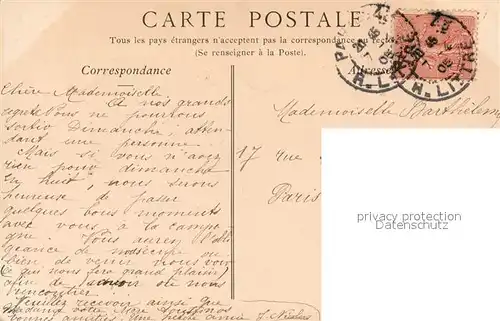 CARTE POSTALE
Tous les pays étrangers n'acceptent pas la correspondance au recto
(Se renseigner à la Poste).
Correspondance
Adresse
R. LITTRÉ
Chère Mademoiselle
A nos grands
regrets nous ne pourrons
sortir Dimanche, atten-
dant une personne.
Mais si vous n'avez
rien pour dimanche
en huit, nous serons
heureux de passer
quelques bons moments
avec vous à la campa
gne. Vous aurez l'obli
geance de m'écrire ou
bien de venir nous voir
(ce qui nous fera grand plaisir)
afin de savoir où nous
rencontrer.
Veuillez recevoir ainsi que
Madame votre Mère nos
bonnes amitiés. Une petite amie J. Nicolas
Mademoiselle Barthélemy
17 rue
Paris
privacy protection
Datenschutz